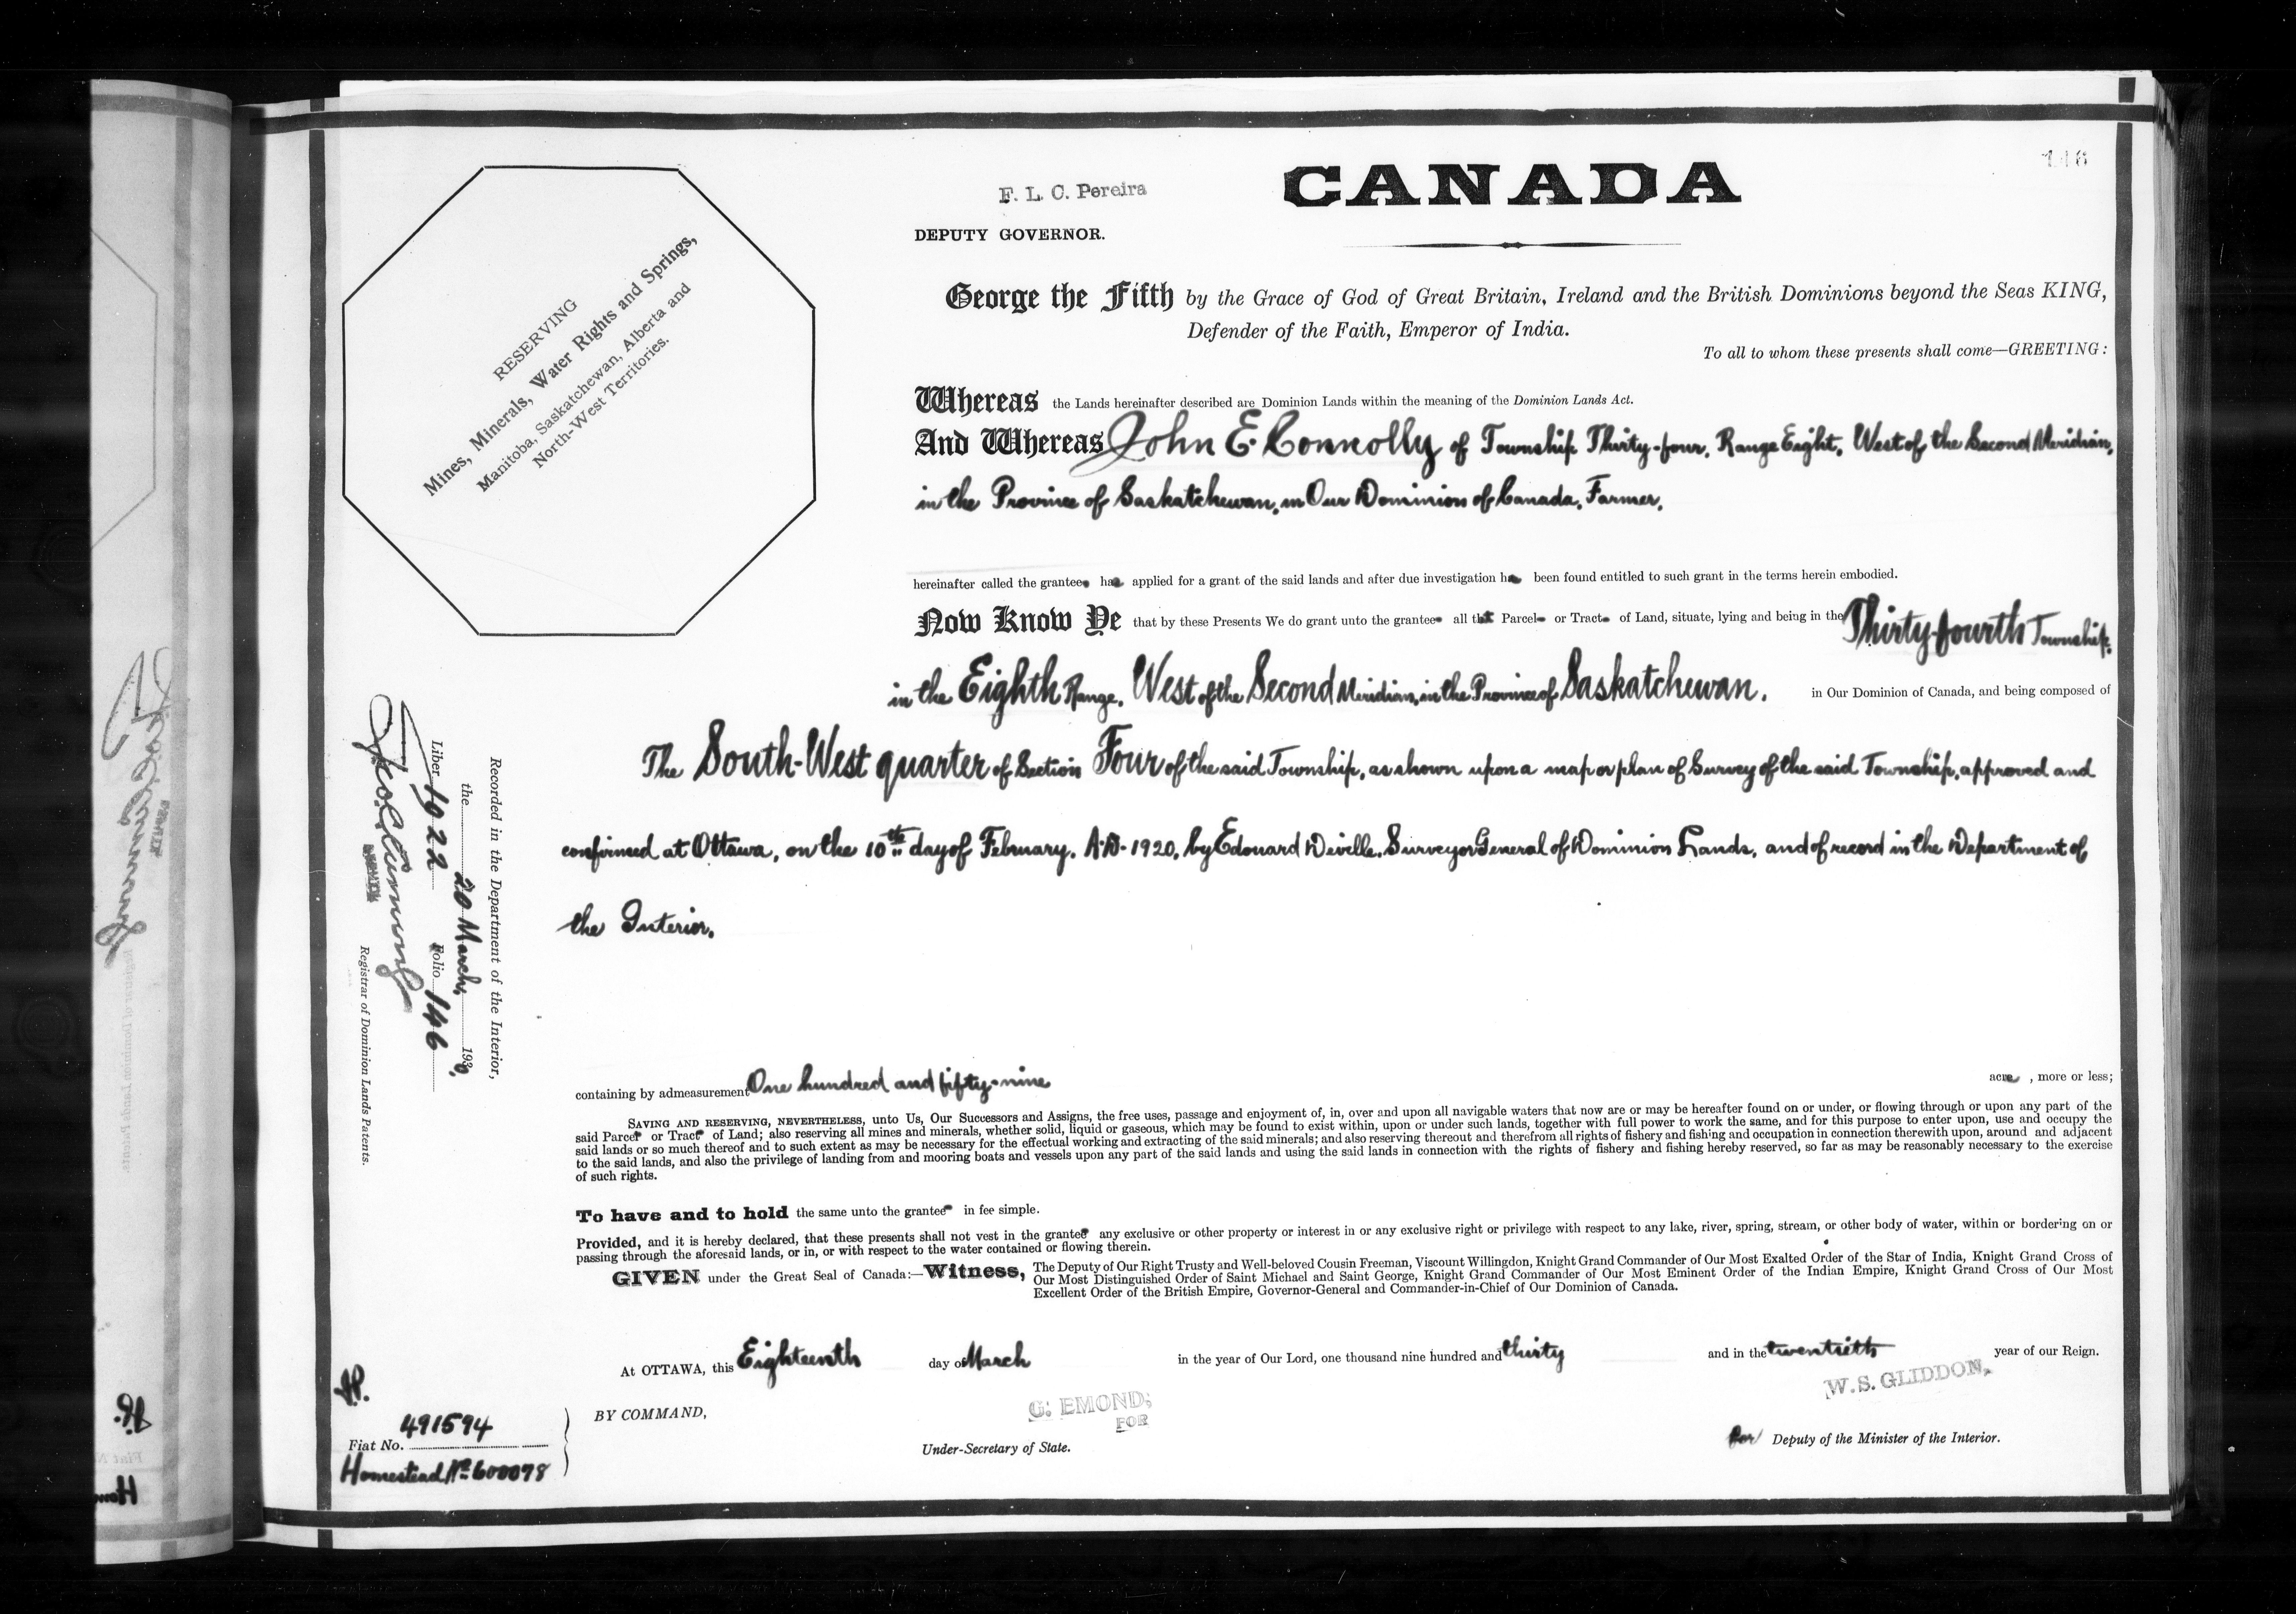 146
F. L. C. Pereira
CANADA
DEPUTY GOVERNOR.
RESERVING
Mines, Minerals, Water Rights and Springs,
Manitoba, Saskatchewan, Alberta and
North-West Territories.
George the Fifth by the Grace of God of Great Britain, Ireland and the British Dominions beyond the Seas KING,
Defender of the Faith, Emperor of India.
To all to whom these presents shall come—GREETING:
Whereas the Lands hereinafter described are Dominion Lands within the meaning of the Dominion Lands Act.
And Whereas John E. Connolly of Township Thirty-four, Range Eight, West of the Second Meridian,
in the Province of Saskatchewan, in Our Dominion of Canada, Farmer,
hereinafter called the grantee has applied for a grant of the said lands and after due investigation ha been found entitled to such grant in the terms herein embodied.
Now Know Ye that by these Presents We do grant unto the grantee all that Parcel or Tract of Land, situate, lying and being in the Thirty-fourth Township,
in the Eighth Range, West of the Second Meridian, in the Province of Saskatchewan, in Our Dominion of Canada, and being composed of
The South-West quarter of Section Four of the said Township, as shown upon a map or plan of Survey of the said Township, approved and
confirmed at Ottawa, on the 10th day of February, A.D. 1920, by Edouard Deville, Surveyor General of Dominion Lands, and of record in the Department of
the Interior.
Recorded in the Department of the Interior,
the 20 March, 1930,
Liber 1922 Folio 146
Registrar of Dominion Lands Patents.
containing by admeasurement One hundred and fifty-nine acre , more or less;
SAVING AND RESERVING, NEVERTHELESS, unto Us, Our Successors and Assigns, the free uses, passage and enjoyment of, in, over and upon all navigable waters that now are or may be hereafter found on or under, or flowing through or upon any part of the
said Parcel or Tract of Land; also reserving all mines and minerals, whether solid, liquid or gaseous, which may be found to exist within, upon or under such lands, together with full power to work the same, and for this purpose to enter upon, use and occupy the
said lands or so much thereof and to such extent as may be necessary for the effectual working and extracting of the said minerals; and also reserving thereout and therefrom all rights of fishery and fishing and occupation in connection therewith upon, around and adjacent
to the said lands, and also the privilege of landing from and mooring boats and vessels upon any part of the said lands and using the said lands in connection with the rights of fishery and fishing hereby reserved, so far as may be reasonably necessary to the exercise
of such rights.
To have and to hold the same unto the grantee in fee simple.
Provided, and it is hereby declared, that these presents shall not vest in the grantee any exclusive or other property or interest in or any exclusive right or privilege with respect to any lake, river, spring, stream, or other body of water, within or bordering on or
passing through the aforesaid lands, or in, or with respect to the water contained or flowing therein.
GIVEN under the Great Seal of Canada:—Witness, The Deputy of Our Right Trusty and Well-beloved Cousin Freeman, Viscount Willingdon, Knight Grand Commander of Our Most Exalted Order of the Star of India, Knight Grand Cross of
Our Most Distinguished Order of Saint Michael and Saint George, Knight Grand Commander of Our Most Eminent Order of the Indian Empire, Knight Grand Cross of Our Most
Excellent Order of the British Empire, Governor-General and Commander-in-Chief of Our Dominion of Canada.
At OTTAWA, this Eighteenth day of March in the year of Our Lord, one thousand nine hundred and thirty and in the twentieth year of our Reign.
W. S. GLIDDON,
BY COMMAND,
G. EMOND,
FOR
Under-Secretary of State.
for Deputy of the Minister of the Interior.
Fiat No. 491594
Homestead No 600078